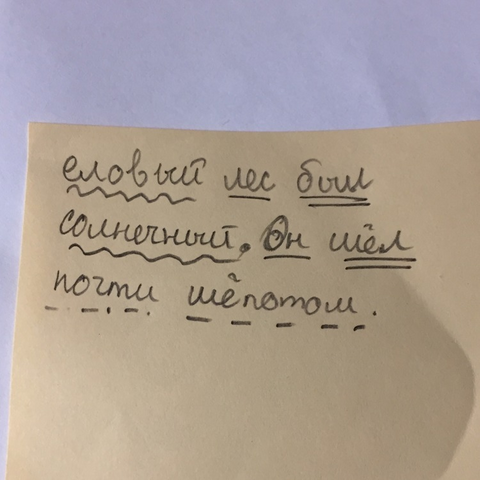 еловый лес был
солнечный. Он шёл
почти шёпотом.